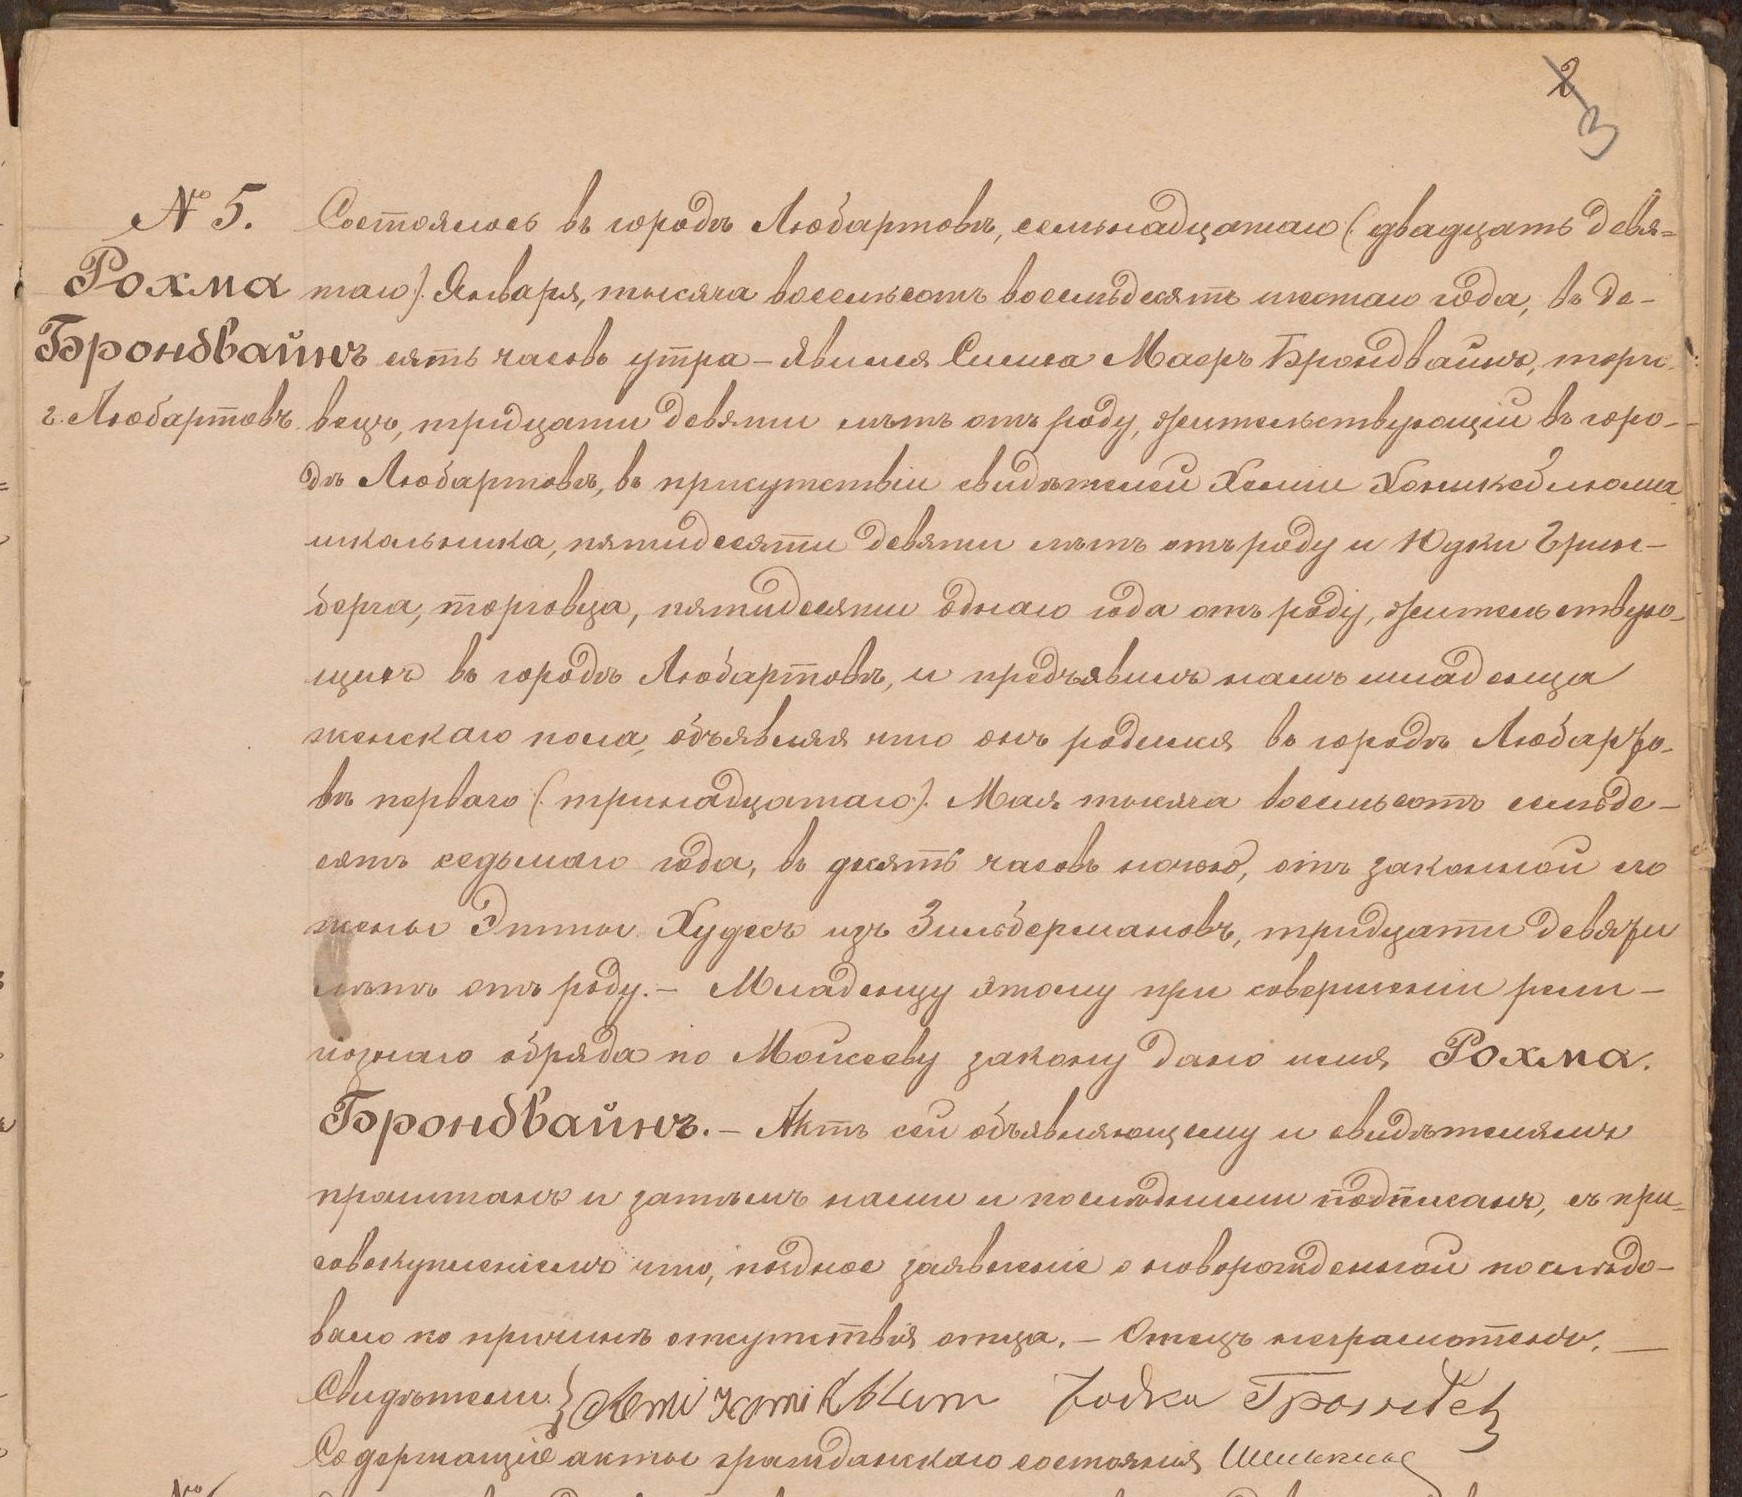 2
3
№ 5.
Рохма
Брондвайнъ
г. Любартовъ
Состоялось въ городѣ Любартовѣ, семнадцатаго (двадцать девя-
таго). Января, тысяча восемьсотъ восемьдесятъ шестаго года, въ де-
сять часовъ утра – явился Симха Маеръ Брондвайнъ, торго-
вецъ, тридцати девяти лѣтъ отъ роду, жительствующій въ горо-
дѣ Любартовѣ, въ присутствіи свидѣтелей Хеми Хоникеблюма
школьника, пятидесяти девяти лѣтъ отъ роду и Юдки Грин-
берга, торговца, пятидесяти однаго года отъ роду, жительствую-
щихъ въ городѣ Любартовѣ, и предъявилъ намъ младенца
женскаго пола, объявляя что онъ родился въ городѣ Любарто-
вѣ перваго (тринадцатаго). Мая тысяча восемьсотъ семьде-
сятъ седьмаго года, въ десять часовъ ночью, отъ законной его
жены Этты Худесъ изъ Зильбермановъ, тридцати девяти
лѣтъ отъ роду. – Младенцу этому при совершеніи рели-
гіознаго обряда по Моисееву закону дано имя Рохма.
Брондвайнъ. – Актъ сей объявляющему и свидѣтелямъ
прочитанъ и затѣмъ нами и послѣдними подписанъ, съ при-
совокупленіемъ что, поздное заявленіе о новорожденной послѣдо-
вало по причинѣ отсутствія отца. – Отецъ неграмотенъ. –
Свидѣтели }
Содержащій акты гражданскаго состоянія
№